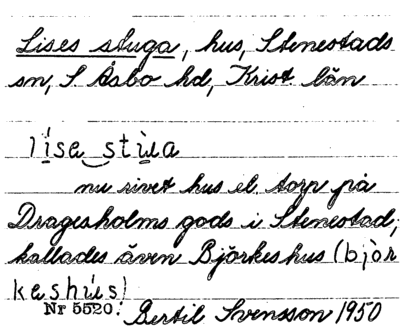 Lises stuga, hus, Stenestads
sn, S Åsbo hd, Krist län
lise stùa
nu rivet hus el. torp på
Dragesholms gods i Stenestad,
kallades även Björkeshus (bjòr
keshùs)
Nr 5520. Bertil Svensson 1950